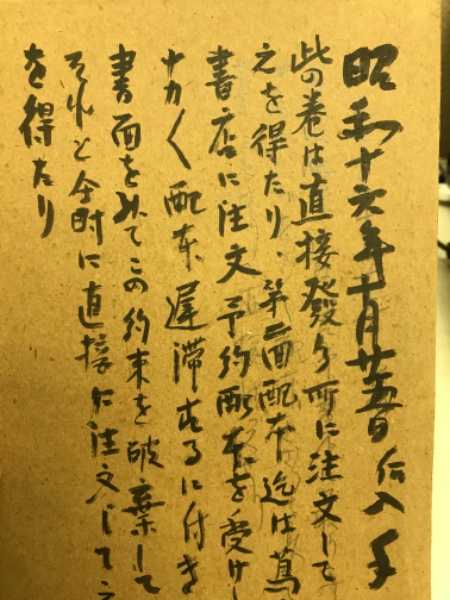 昭和十六年十月廿五日入手
此の巻は直接發行所に注文して
之を得たり、第二回配本迄は蔦
書店に注文予約配本を受けし
サカく配本遅滞するに付き
書面をみてこの約束を破棄して
それと同時に直接に注文して之
を得たり